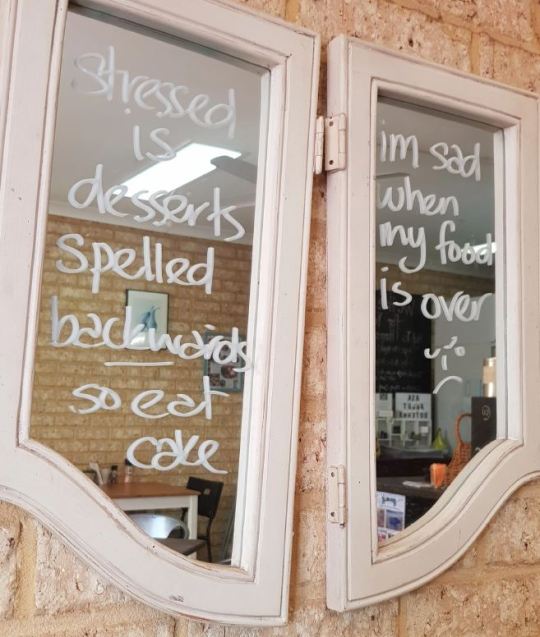 stressed
is
desserts
spelled
backwards
so eat
cake
im sad
when
my food
is over